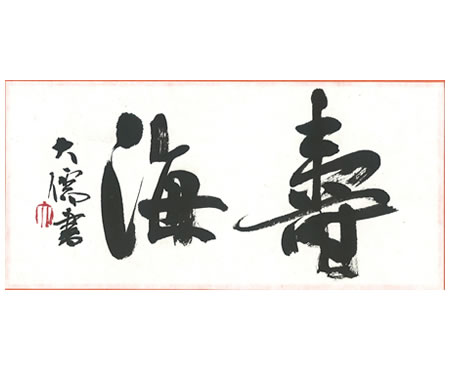 寿海
大儒書